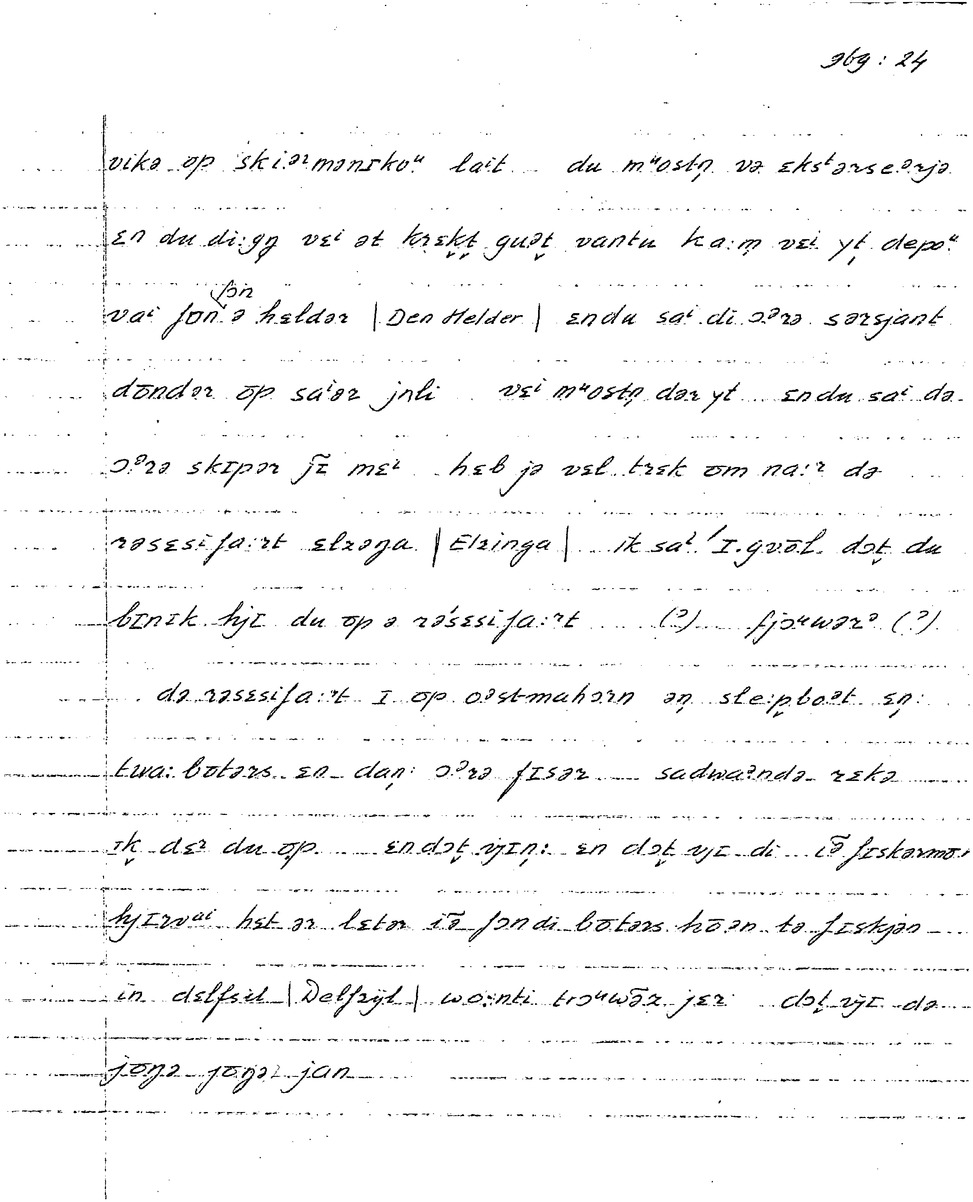 969 : 24
vikə ɷp skiəʳmənɪkoᵘ laⁱt du mᵘostn̩ və ɛkstərseᵊrjə
ɛn du di:gŋ vɛⁱ ət krɛk̬t̬ guət̬ vantu ka:m̩ vɛⁱ yt̩ depoᵘ
fɔn
vaⁱ fɔn ə hɛldər | Den Helder | ɛndu saⁱ di ɔᵊrə sərsjant
dɷ̄ndər ɷp saⁱər jnli vɛⁱ mᵘostn̩ dər yt ɛndu saⁱ də
ɔᵊrə skɪpər jɪ̃ mɛⁱ hɛb jə vɛl trɛk ɷm na:ʳ də
rəsɛsifa:ʳt ɛlzəŋa | Elzinga | ik saⁱ ɪ.gvɷ̄l dɔt̬ du
bɪnɪk hjɪ du ɷp ə rəsɛsifa:ʳt (ʔ) fjɔᵘwərᵊ (ʔ)
də rəsɛsifa:ʳt ɪ ɷp oᵊstmahɔrn ən̩ sle:p̬boᵊt ɛn̩:
twa: bɷtərs ɛn dan̩: ɔᵊrə fɪsər sadwaᵊndə rɛkə
ɪk̬ dɛʳ du ɷp ɛndɔt̬ vjɪn̩: ɛn dɔt̬ vjɪ di iə̃ fɪskərmɷ
hjɪrvᵃⁱ hɛt ər lɛtər iə̃ fɔndi bɷtərs hɷ̄ən tə fɪskjən
in dɛlfsil | Delfzijl | wo:nti trɔᵘwə̃r jɛr dɔt̬ vjɪ də
jɷŋə jɷŋəʳ jan